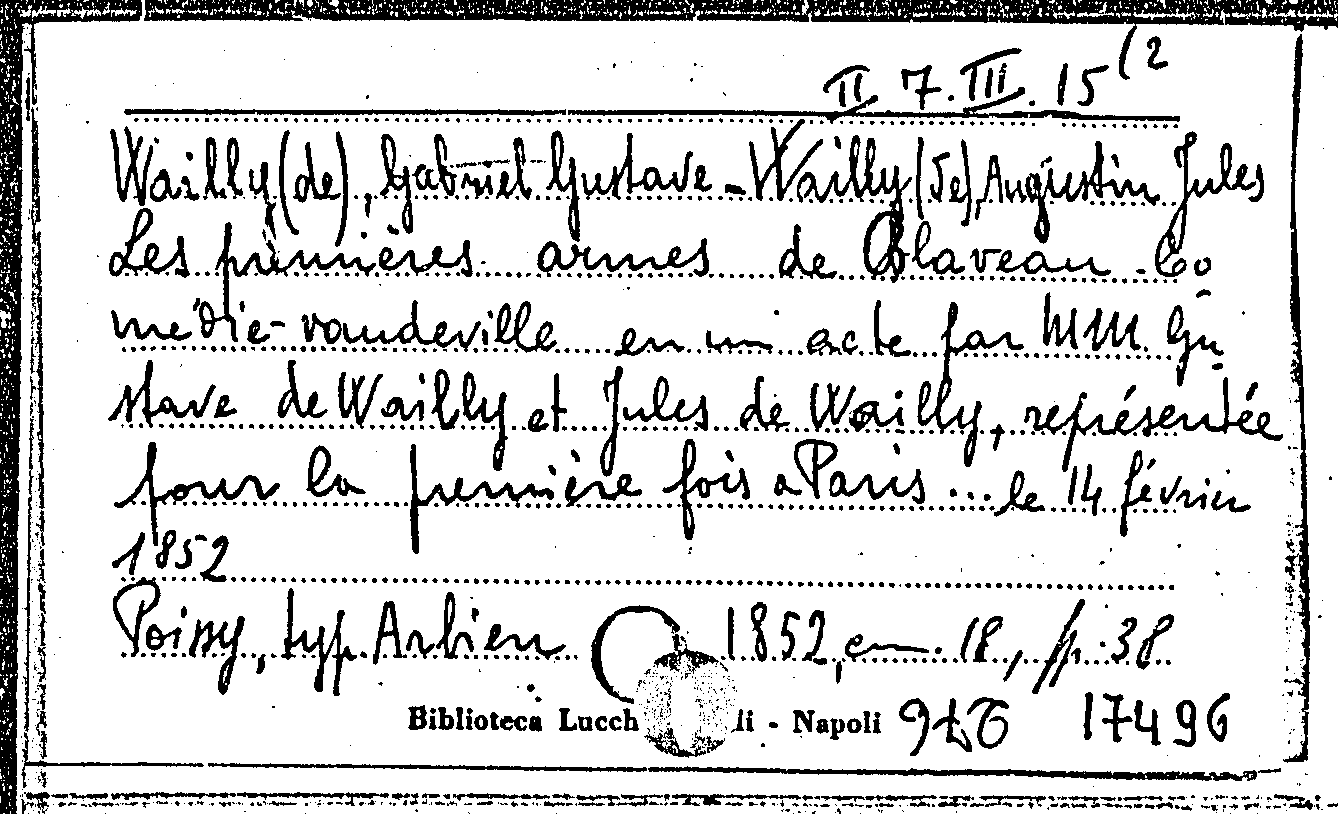 II. 7. III. 15 (2
Wailly (de), Gabriel Gustave - Wailly (de), Augustin Jules
Les premières armes de Blaveau. Co
médie-vaudeville en un acte par MM. Gu
stave de Wailly et Jules de Wailly, représentée
pour la première fois a Paris ... le 14 février
1852
Poissy, typ. Arbieu 1852, cm. 18, pp. 38
Biblioteca Lucch li - Napoli 17496